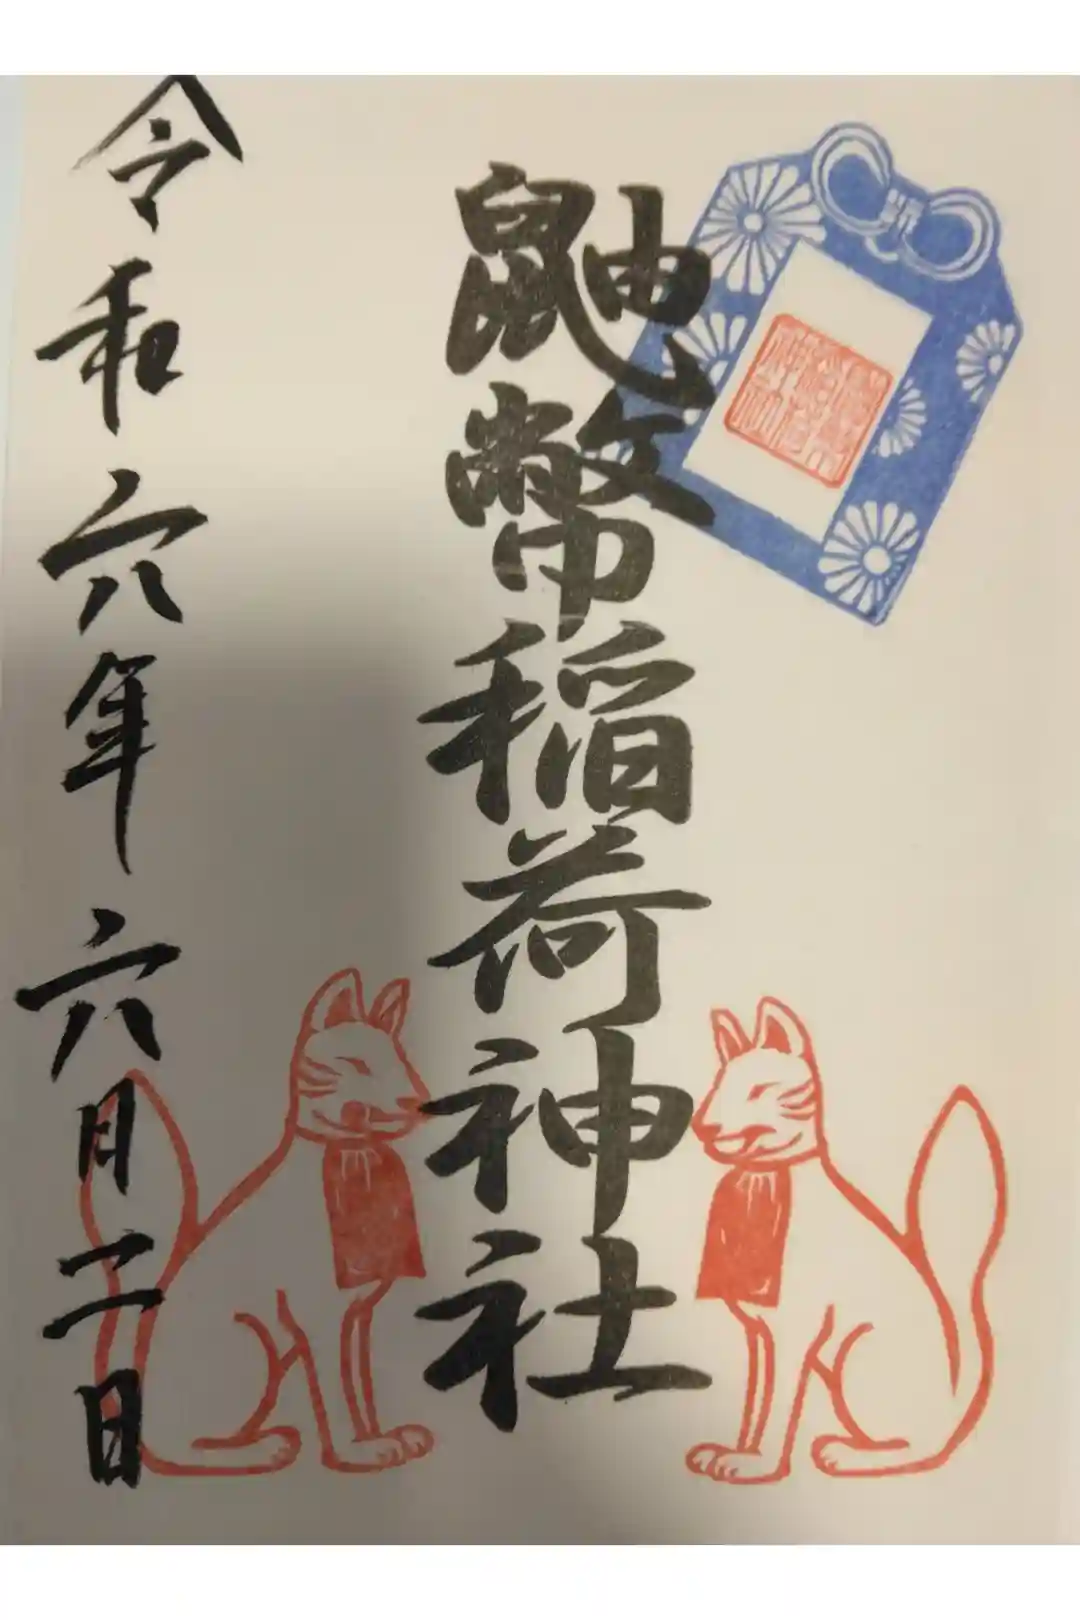 鼬幣稲荷神社
令和六年六月二日